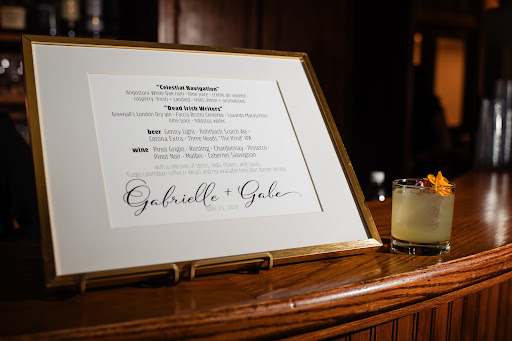 "Celestial Navigation"
Angostura White Oak rum · lime juice · crème de violette ·
raspberry, fresh + candied
"Dead Irish Writers"
Greenall's London Dry gin · Faccia Brutto Centerbe · Luxardo Maraschino ·
lime juice · hibiscus water
beer Genny Light · Rohrbach Scotch Ale ·
Corona Extra · Three Heads "The Kind" IPA
wine Pinot Grigio · Riesling · Chardonnay · Prosecco ·
Pinot Noir · Malbec · Cabernet Sauvignon
with a selection of spirits, soda, mixers, and juices
Gabrielle + Gabe